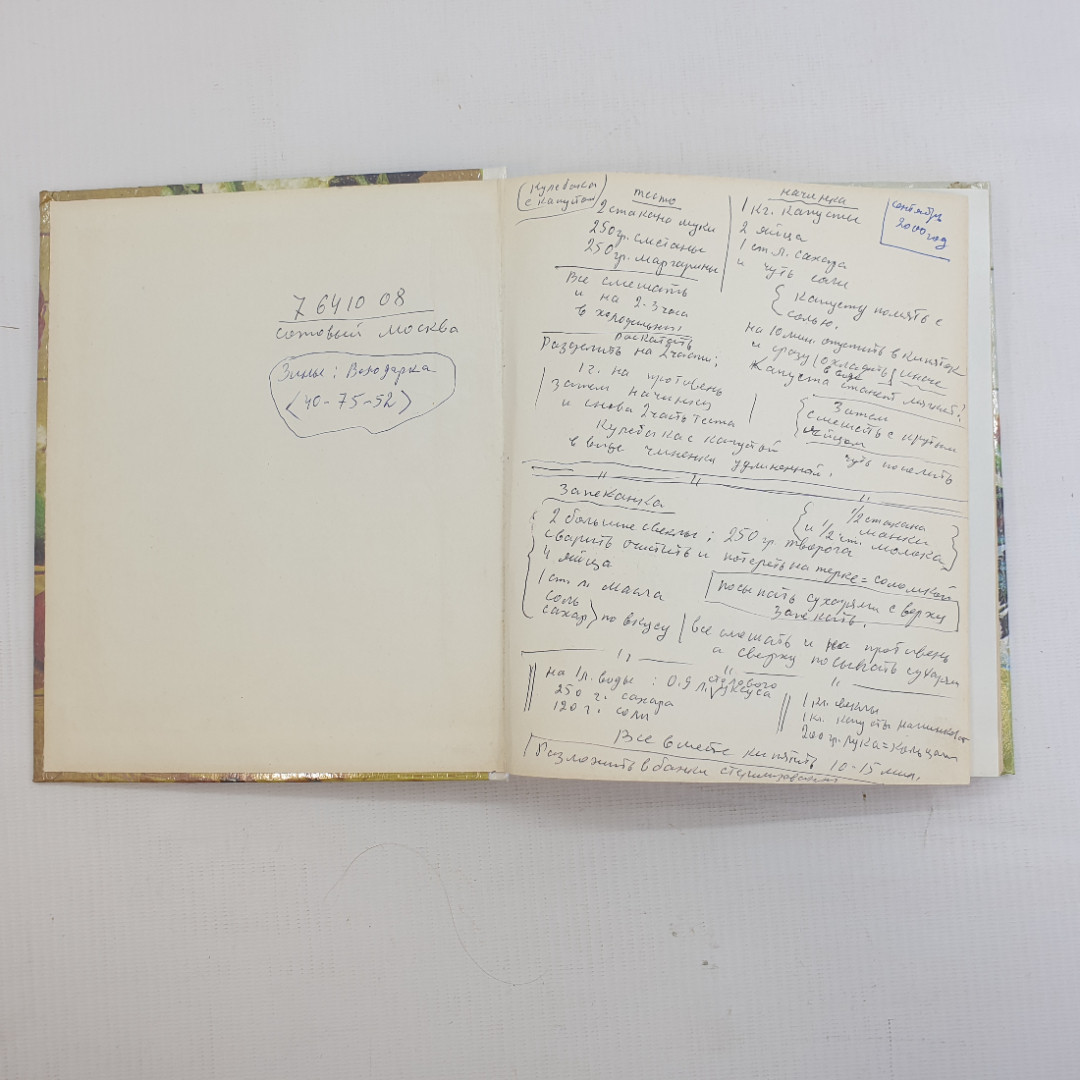 7 641008
сотовый Москва
Зины: Володарка
40-75-52
Кулебяка
с капустой
тесто
2 стакана муки
250 гр. сметаны
250 гр. маргарины
Все смешать
и на 2-3 часа
в холодильник
раскатать
Разделить на 2 части;
1 г. на противень
затем начинку
и снова 2 часть теста
Кулебяка с капустой
в виде удлиненной.
начинка
1 кг. капусты
2 яйца
1 ст. л. сахара
и чуть соли
Капусту помять с
солью.
на 10 мин. опустить в кипяток
и сразу охладить иначе
в воде
Капуста станет мягкой?
Затем
смешать с крутым
яйцом
чуть посолить
сентябрь
2000 год
Запеканка
2 большие свеклы; 250 гр. творога
сварить очистить и потереть на терке = соломкой
4 яйца
1 ст. л. масла
соль
сахар по вкусу
1/2 стакана
манки
и 1/2 ст. молока
посыпать сухарями с верху
запекать.
все смешать и на противень
а сверху посыпать сухари
на 1 л. воды: 0.9 л. уксуса
столового
250 г. сахара
120 г. соли
1 кг. свеклы
1 кг. капусты
200 гр. лука = кольцами
Все вместе кипятить 10-15 мин.
Разложить в банки стерилизовать